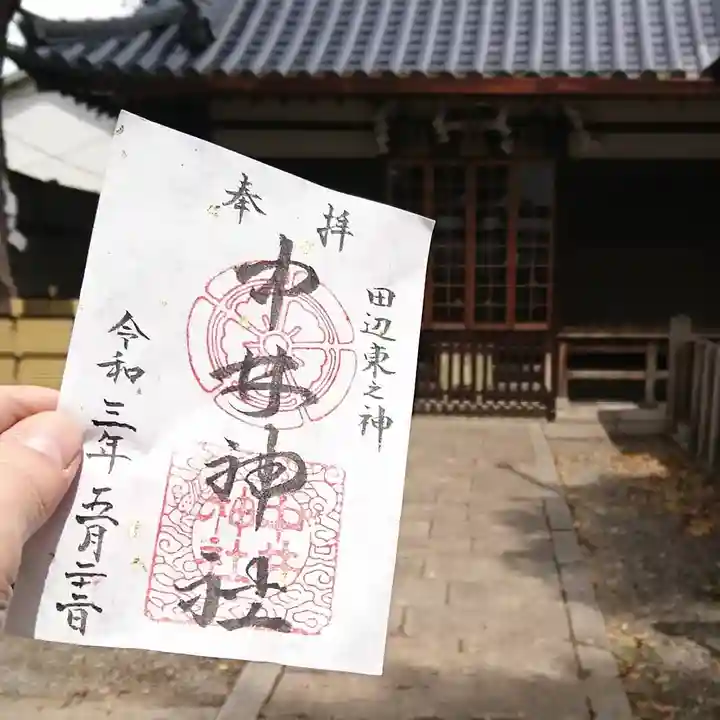 奉拝
田辺東之神
中井神社
中井神社
令和三年五月二十二日